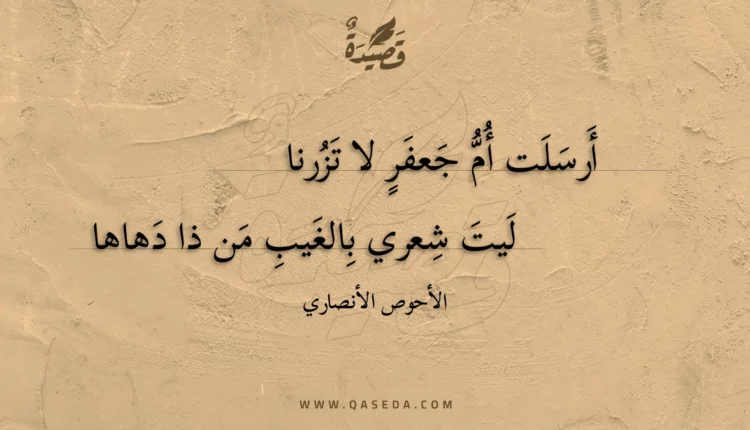 قَصِيْدَةٌ
أَرسَلَت أُمُّ جَعفَرٍ لا تَزُرنا
لَيتَ شِعري بِالغَيبِ مَن ذا دَهاها
الأحوص الأنصاري
WWW.QASEDA.COM